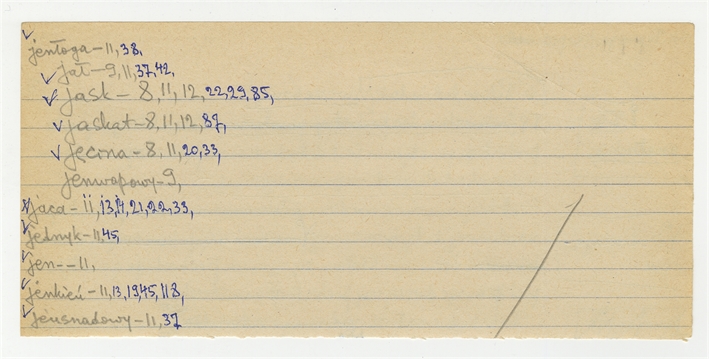 jentoga - 11, 38,
jat - 9, 11, 37, 42,
jask - 8, 11, 12, 22, 29, 85,
jaskat - 8, 11, 12, 87,
jęcina - 8, 11, 20, 33,
jenwapowy - 9,
jaca - 11, 13, 14, 21, 22, 33,
jednyk - 11, 45,
jen- - 11,
jénkieú - 11, 13, 19, 45, 118,
jeusnadowy - 11, 37